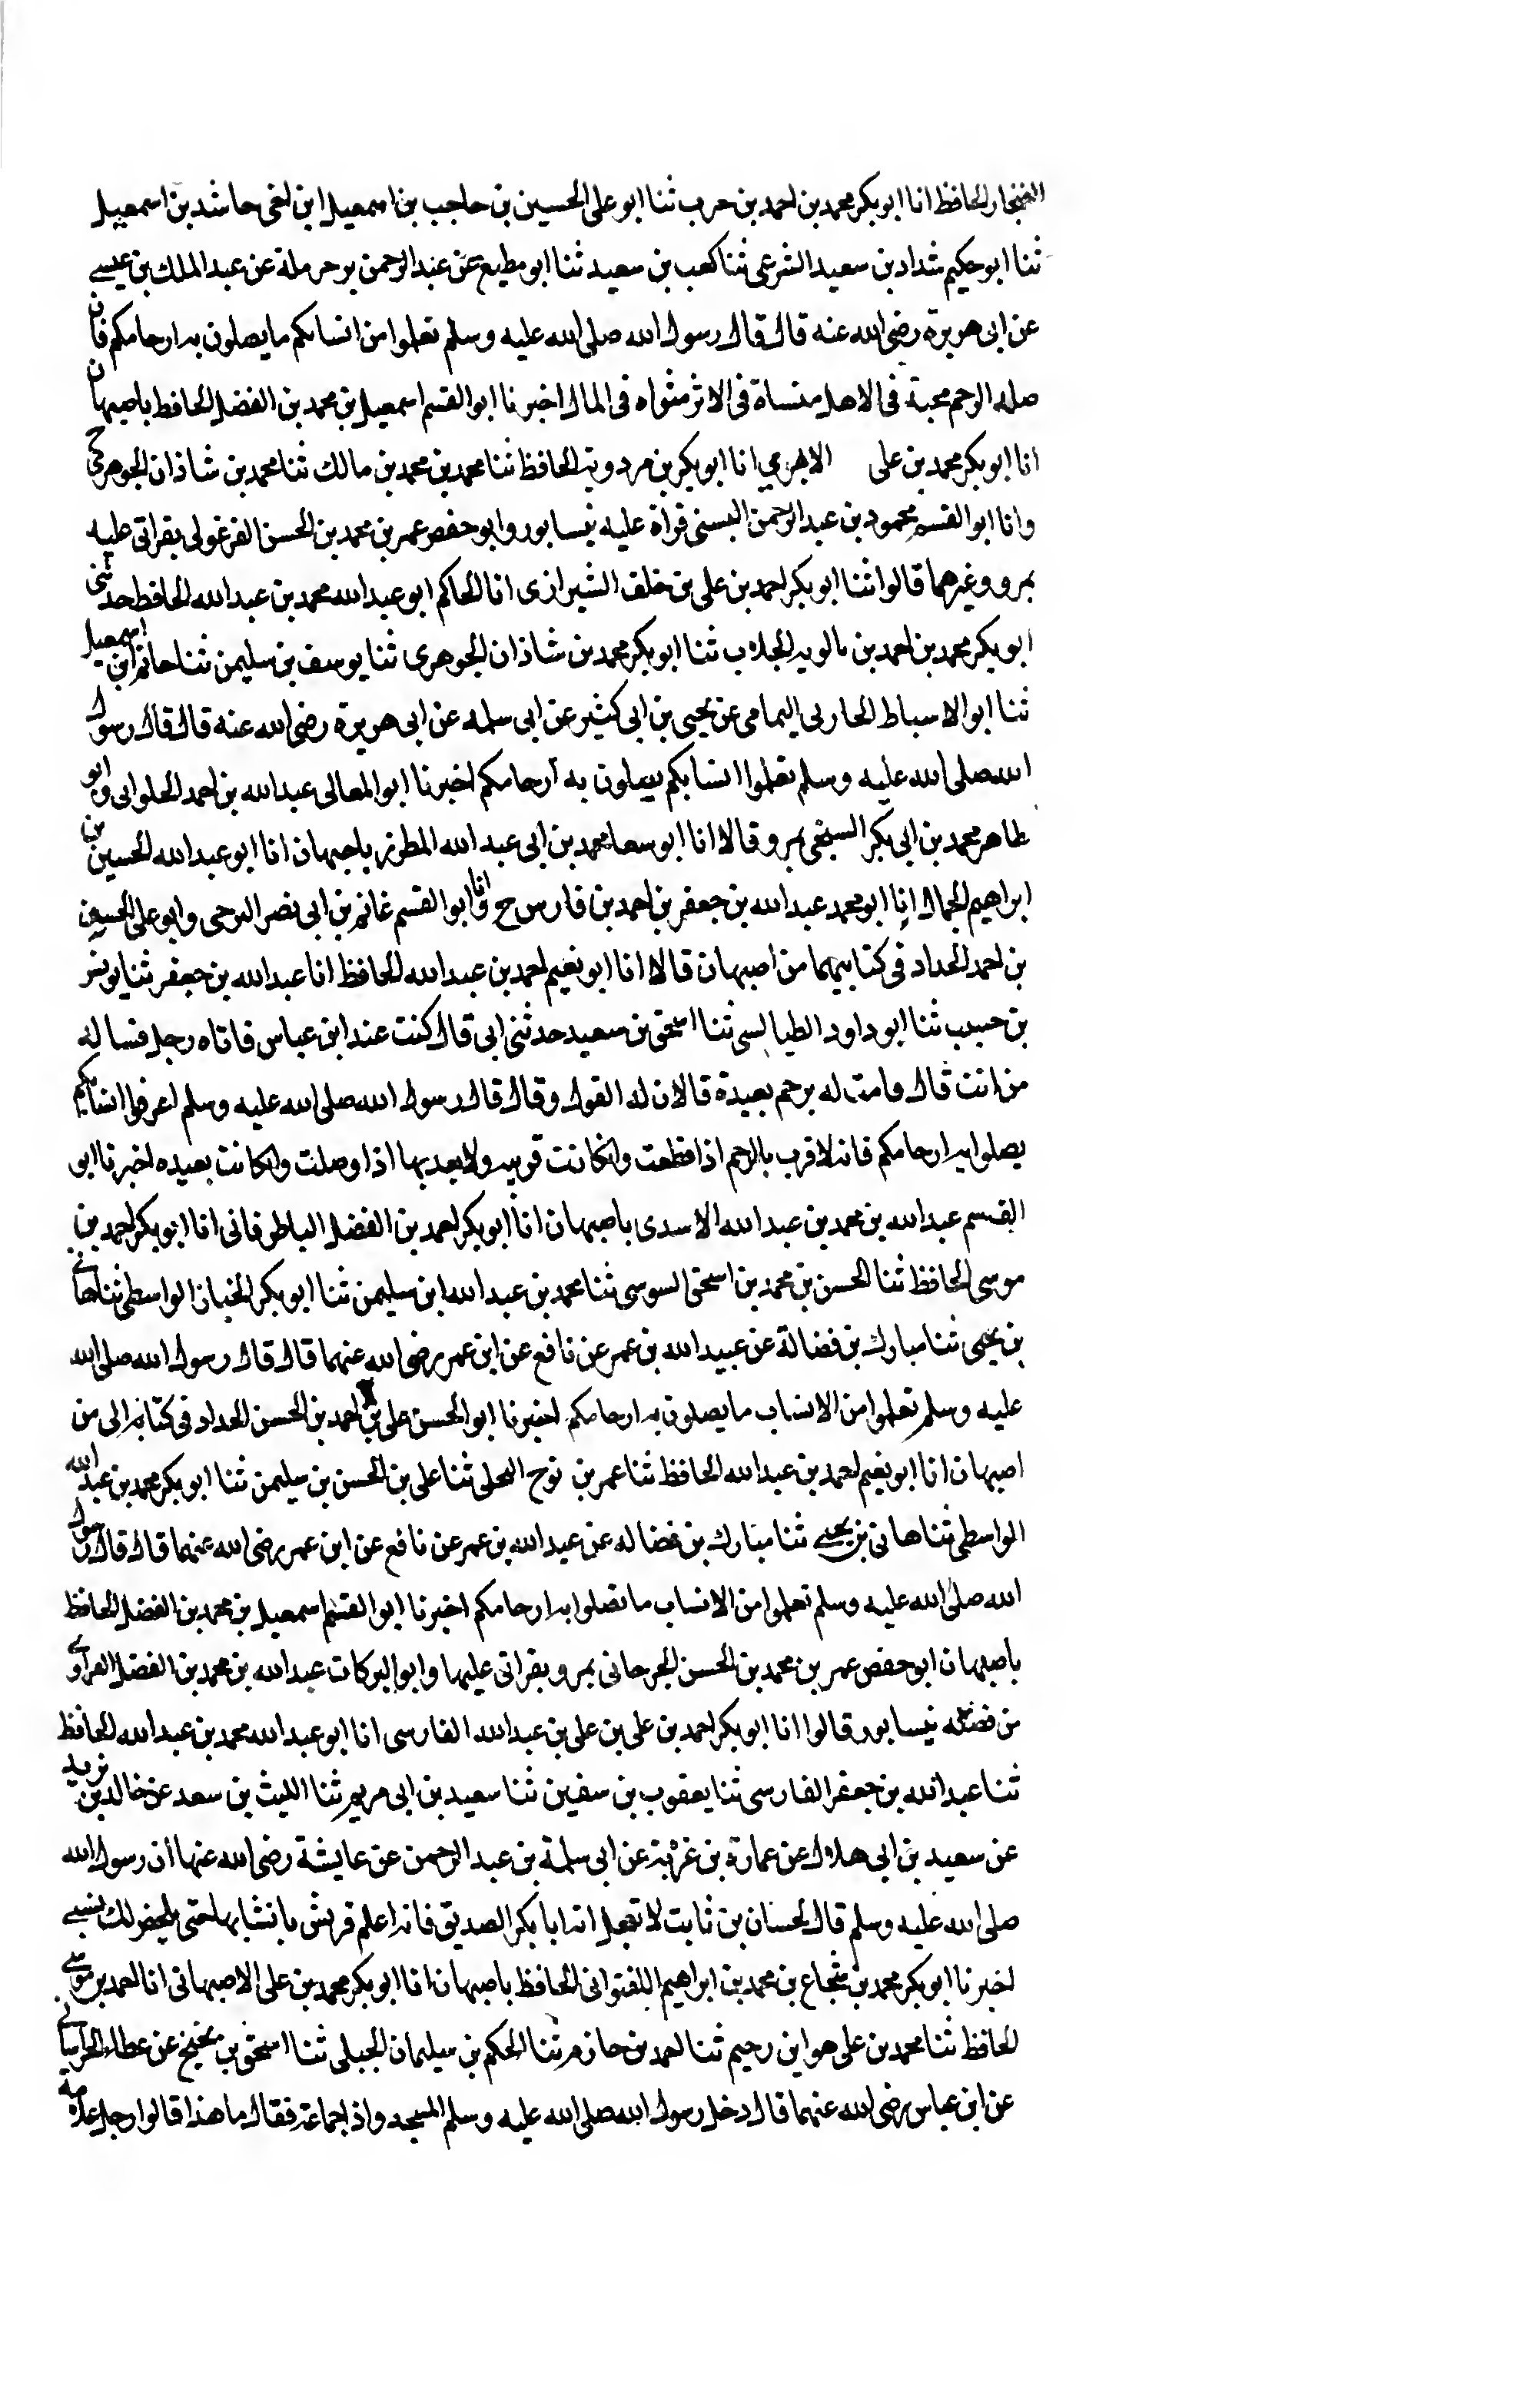 الغنجار الحافظ انا ابو بكر محمد بن احمد بن حرب ثنا ابو على الحسين بن حاجب بن اسمعيل ابن لخى حاشد بن اسمعيل
ثنا ابو حكيم شداد بن سعيد الشرعى ثنا كعب بن سعيد ثنا ابو مطيع عن عبد الرحمن بن حرملة عن عبد الملك بن عيسى
عن ابى هريرة رضى الله عنه قال قال رسول الله صلى الله عليه وسلم تعلموا من انسابكم ما يصلون به ارحامكم فان
صلة الرحم محبة فى الاهل منساة فى الاثر مثواه فى المال اخبرنا ابو القسم اسمعيل بن محمد بن الفضل الحافظ باصبهان
انا ابو بكر محمد بن على الاهري انا ابو بكر بن مردويه الحافظ ثنا محمد بن محمد بن مالك ثنا محمد بن شاذان الجوهرى ح
وانا ابو القسم محمود بن عبد الرحمن البستى قراة عليه نيسابور وابو حفص عمر بن محمد بن الحسن الفرغولى بقراتى عليه
بمرو وغيرهما قالوا ثنا ابو بكر احمد بن على بن خلف الشيرازى انا الحاكم ابو عبد الله محمد بن عبد الله الحافظ حدثنى
ابو بكر محمد بن احمد بن بالويه الجلاب ثنا ابو بكر محمد بن شاذان الجوهرى ثنا يوسف بن سليمن ثنا حاتم ابن اسمعيل
ثنا ابو الاسباط الحاربى اليمامى عن يحيى بن ابى كثير عن ابى سلمه عن ابى هريرة رضى الله عنه قال قال رسول
الله صلى الله عليه وسلم تعلموا انسابكم يصلون به ارحامكم اخبرنا ابو المعالى عبد الله بن احمد الحلوانى وابو
طاهر محمد بن ابى بكر السنجى بمرو قالا انا ابو سعد محمد بن ابى عبد الله المطرز باصبهان انا ابو عبد الله الحسين بن
ابراهيم الجمال انا ابو محمد عبد الله بن جعفر بن احمد بن فارس ح وانا ابو القسم غانم بن ابى نصر البرجى وابو على الحسين
بن احمد الحداد فى كتابيهما من اصبهان قالا انا ابو نعيم احمد بن عبد الله الحافظ انا عبد الله بن جعفر ثنا يونس
بن حبيب ثنا ابو داود الطيالسى ثنا اسحق بن سعيد حدثنى ابى قال كنت عند ابن عباس فاتاه رجل فساله
من انت قال فامت له برحم بعيدة قالان له القول وقال قال رسول الله صلى الله عليه وسلم اعرفوا انسابكم
يصلوا به ارحامكم فانه لا قرب بالرحم اذا قطعت وان كانت قريبه ولا بعد بها اذا وصلت وان كانت بعيده اخبرنا ابو
القسم عبد الله بن محمد بن عبد الله الاسدى باصبهان انا ابو بكر احمد بن الفضل الباطرفانى انا ابو بكر احمد بن
موسى الحافظ ثنا الحسن بن محمد بن اسحق السوسى ثنا محمد بن عبد الله ابن سليمن ثنا ابو بكر الخباز الواسطى ثنا هانى
بن يحيى ثنا مبارك بن فضالة عن عبيد الله بن عمر عن نافع عن ابن عمر رضى الله عنهما قال قال رسول الله صلى الله
عليه وسلم تعلموا من الانساب ما يصلون به ارحامكم اخبرنا ابو الحسن على بن احمد بن الحسن الحداد فى كتابه الى من
اصبهان انا ابو نعيم احمد بن عبد الله الحافظ ثنا عمر بن نوح البجلى ثنا على بن الحسن بن سليمن ثنا ابو بكر محمد بن عبد الله
الواسطى ثنا هانى بن يحيى ثنا مبارك بن فضاله عن عبيد الله بن عمر عن نافع عن ابن عمر رضى الله عنهما قال قال رسول
الله صلى الله عليه وسلم تعلموا من الانساب ما تصلوا به ارحامكم اخبرنا ابو القسم اسمعيل بن محمد بن الفضل الحافظ
باصبهان ابو حفص عمر بن محمد بن الحسن الجرجانى بمرو بقراتى عليها وابو البركات عبد الله بن محمد بن الفضل الفراوى
من نيسابور قالوا انا ابو بكر احمد بن على بن على بن عبد الله الفارسى انا ابو عبد الله محمد بن عبد الله الحافظ
ثنا عبد الله بن جعفر الفارسى ثنا يعقوب بن سفين ثنا سعيد بن ابى مريم ثنا الليث بن سعد عن خالد بن يزيد
عن سعيد بن ابى هلال عن عمارة بن غزية عن ابى سلمة بن عبد الرحمن عن عايشة رضى الله عنها ان رسول الله
صلى الله عليه وسلم قال لحسان بن ثابت لا تعجل ات ابا بكر الصديق فانه اعلم قريش بانسابها حتى يلخص لك نسبى
اخبرنا ابو بكر محمد بن شجاع بن محمد بن ابراهيم اللفتوانى الحافظ باصبهان انا ابو بكر محمد بن على الاصبهانى انا احمد بن موسى
الحافظ ثنا محمد بن على هو ابن رحيم ثنا احمد بن حازم ثنا الحكم بن سليمان الجبلى ثنا اسحق بن نجيح عن عطاء الخراسانى
عن ابن عباس رضى الله عنهما قال دخل رسول الله صلى الله عليه وسلم المسجد واذ اجماعة فقال ما هذا قالوا رجل علامه